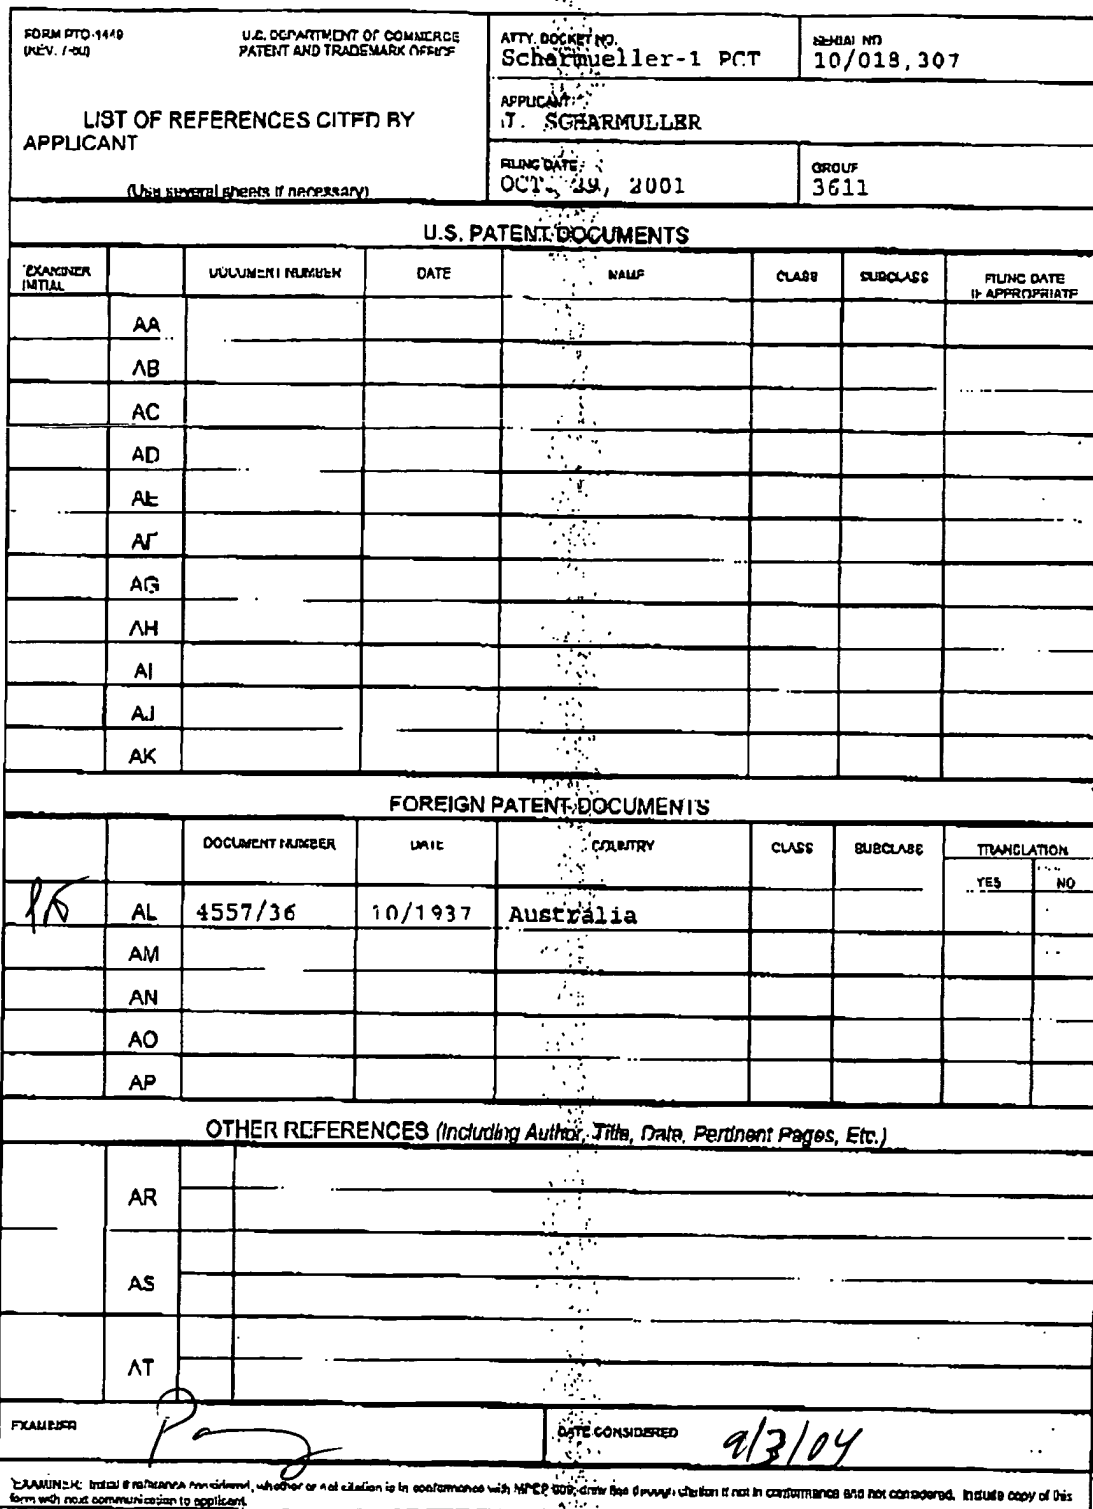 FORM PTO-1449
U.S. DEPARTMENT OF COMMERCE
PATENT AND TRADEMARK OFFICE
LIST OF REFERENCES CITED BY
APPLICANT
(Use several sheets if necessary)
ATTY. DOCKET NO.
Scharmueller-1 PCT
SERIAL NO
10/018,307
APPLICANT:
J. SCHARMULLER
FILING DATE:
OCT. 29, 2001
GROUP
3611
U.S. PATENT DOCUMENTS
*EXAMINER
INITIAL
DOCUMENT NUMBER
DATE
NAME
CLASS
SUBCLASS
FILING DATE
IF APPROPRIATE
AA
AB
AC
AD
AE
AF
AG
AH
AI
AJ
AK
FOREIGN PATENT DOCUMENTS
DOCUMENT NUMBER
DATE
COUNTRY
CLASS
SUBCLASS
TRANSLATION
YES
NO
AL 4557/36 10/1937 Australia
AM
AN
AO
AP
OTHER REFERENCES (Including Author, Title, Date, Pertinent Pages, Etc.)
AR
AS
AT
EXAMINER
DATE CONSIDERED 9/3/04
*EXAMINER: Initial if reference considered, whether or not citation is in conformance with MPEP 609; draw line through citation if not in conformance and not considered. Include copy of this
form with next communication to applicant.